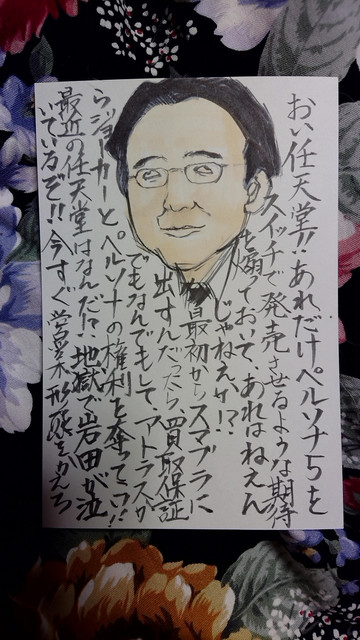 おい任天堂!!あれだけペルソナ5を
スイッチで発売させるような期待
を煽っておいて、あれはねえん
じゃねえか!?
最初からスマブラに
出すんだったら、買取保証
でもなんでもして アトラスか
らジョーカーとペルソナの権利を奪ってコ!!
最近の任天堂はなんだ!?地獄で岩田が泣
いている方ぞ!!今すぐ営業形態をかえろ